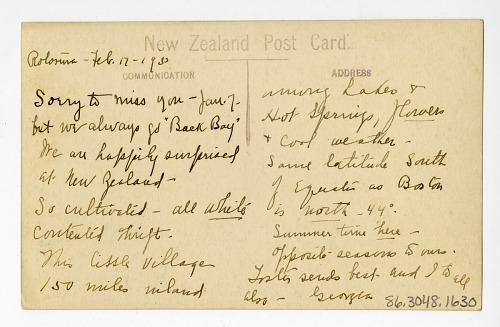 New Zealand Post Card.
Rotorua - Feb. 17 - 1930
COMMUNICATION
Sorry to miss you - Jan. 7 -
but we always go "Back Bay"
We are happily surprised
at New Zealand -
So cultivated - all white
Contented thrift.
This little village
150 miles inland
ADDRESS
among Lakes &
Hot Springs, flowers
& cool weather -
Same latitude South
of Equator as Boston
is north - 44°.
Summer time here -
opposite seasons to ours.
Foster sends best and I to all
also - Georgea
86.3048.1630